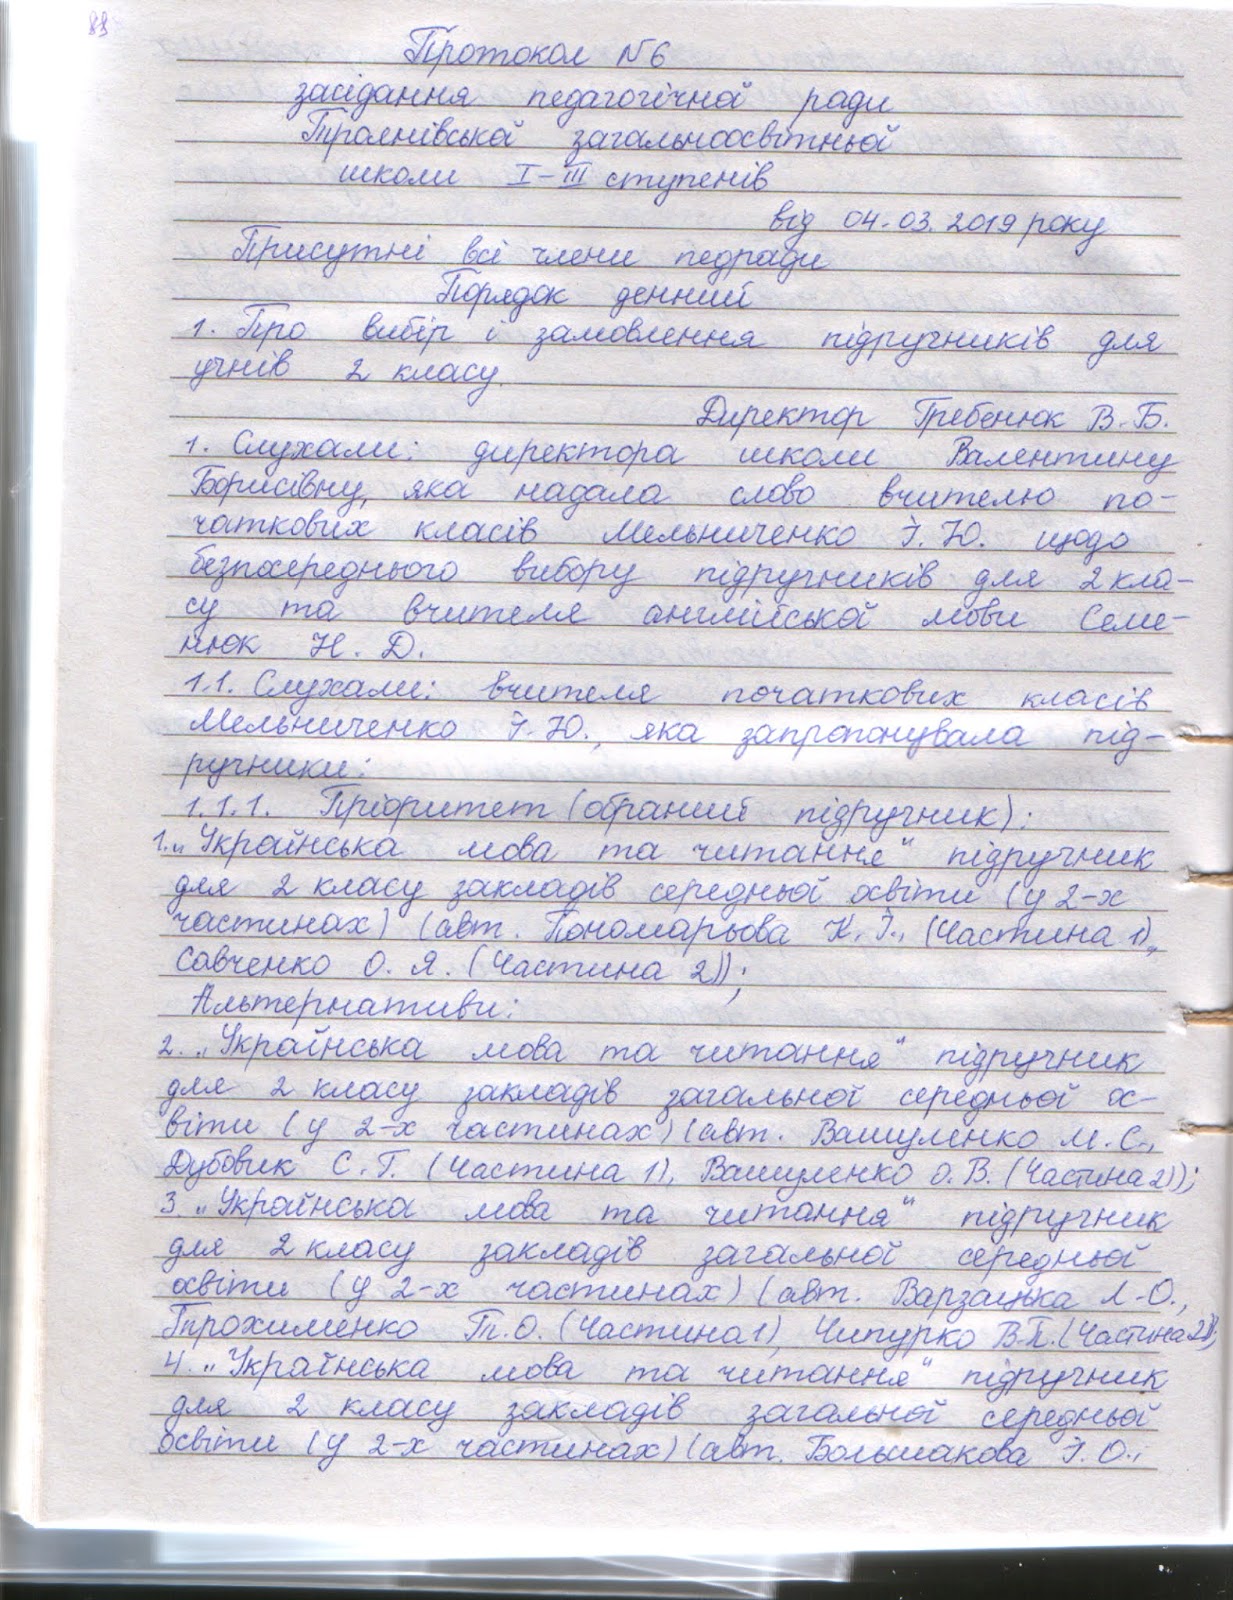 89
Протокол №6
засідання педагогічної ради
Троянівської загальноосвітньої
школи І-ІІІ ступенів
від 04.03.2019 року
Присутні всі члени педради
Порядок денний
1. Про вибір і замовлення підручників для
учнів 2 класу.
Директор Гребенюк В.Б.
1. Слухали: директора школи Валентину
Борисівну, яка надала слово вчителю по-
чаткових класів Мельниченко І.Ю. щодо
безпосереднього вибору підручників для 2 кла-
су та вчителя англійської мови Семе-
нюк Н.Д.
1.1. Слухали: вчителя початкових класів
Мельниченко І.Ю., яка запропонувала під-
ручники:
1.1.1. Пріоритет (обраний підручник):
1. „Українська мова та читання“ підручник
для 2 класу закладів середньої освіти (у 2-х
частинах) (авт. Пономарьова К.І., (Частина 1),
Савченко О.Я. (Частина 2));
Альтернативи:
2. „Українська мова та читання“ підручник
для 2 класу закладів загальної середньої ос-
віти (у 2-х частинах) (авт. Вашуленко М.С.,
Дубовик С.Г. (Частина 1), Вашуленко О.В. (Частина 2));
3. „Українська мова та читання“ підручник
для 2 класу закладів загальної середньої
освіти (у 2-х частинах) (авт. Варзацька Л.О.,
Трохименко Т.О. (Частина 1), Чипурко В.П. (Частина 2));
4. „Українська мова та читання“ підручник
для 2 класу закладів загальної середньої
освіти (у 2-х частинах) (авт. Большакова І.О.,